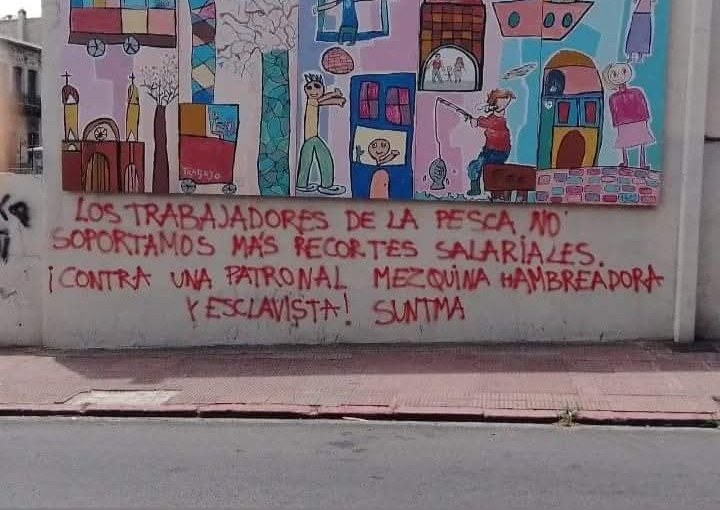 TRABAJO
LOS TRABAJADORES DE LA PESCA NO
SOPORTAMOS MÁS RECORTES SALARIALES.
¡CONTRA UNA PATRONAL MEZQUINA HAMBREADORA
Y ESCLAVISTA! SUNTMA